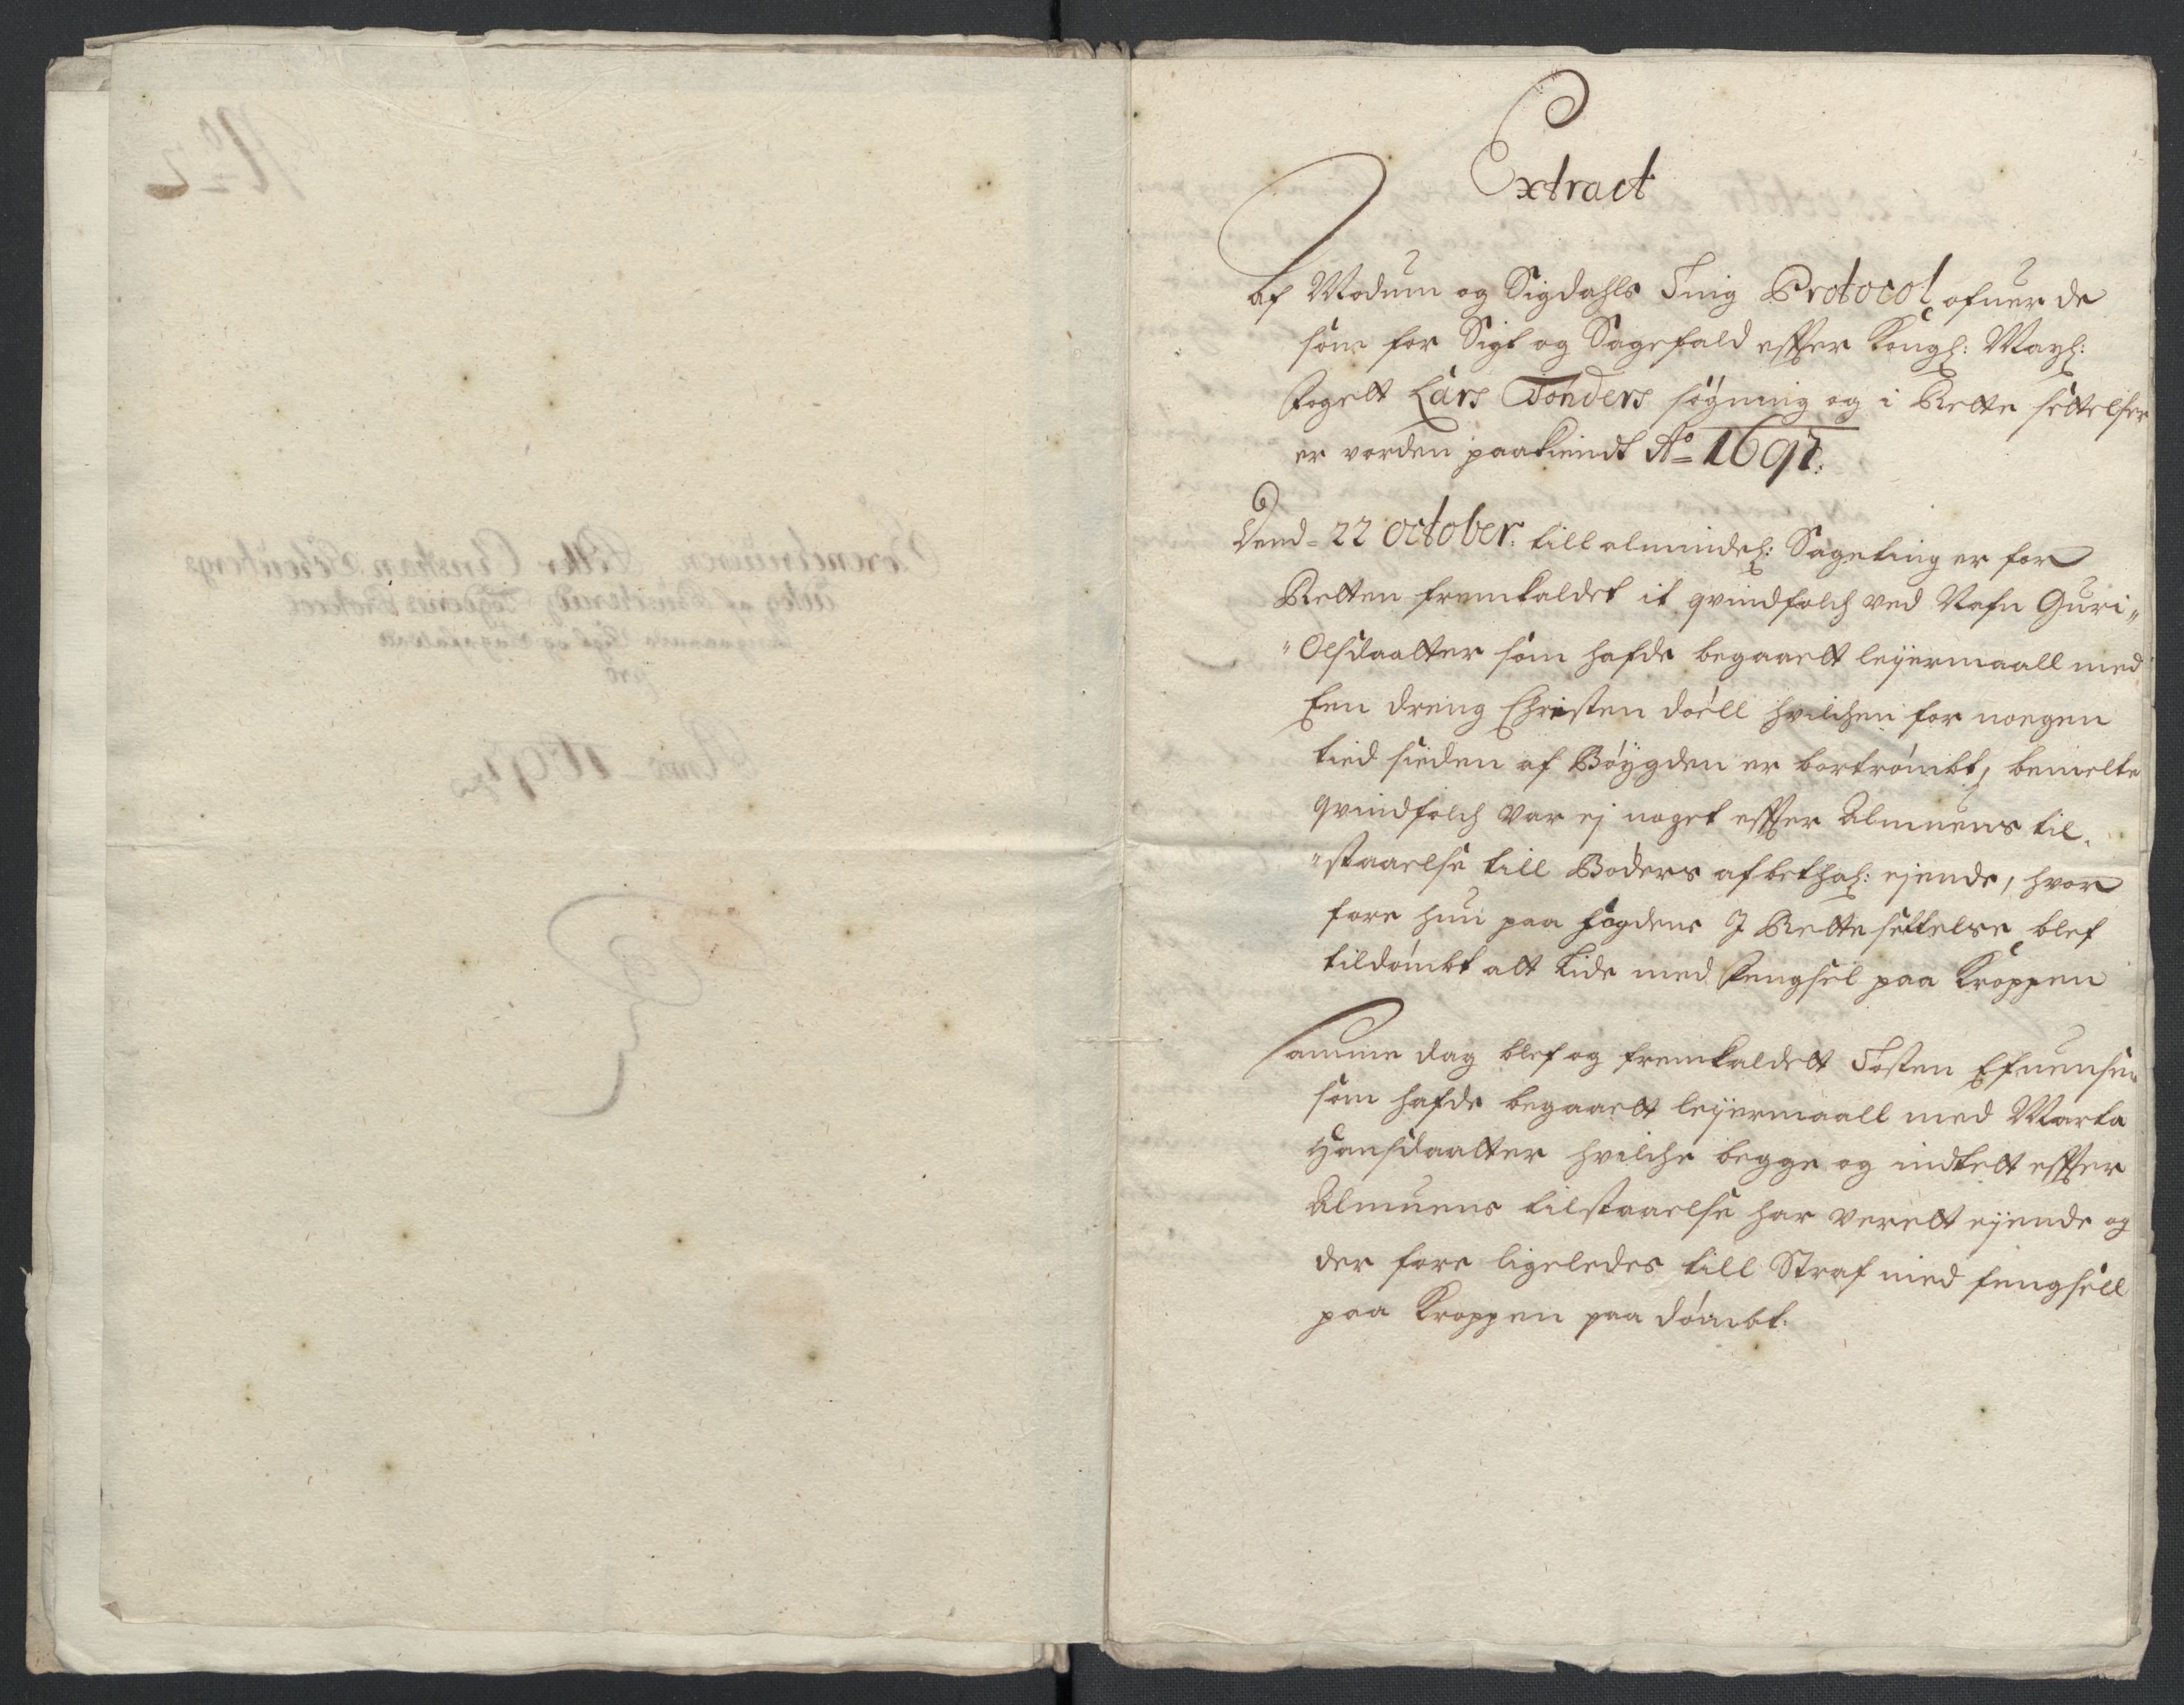 Extract
Af Modum og Sigdahls Ting Protocol ofuer de
som for Sigt og Sagefald effter Kongl: Mayt:
Fogett Lars Tønders søgning og i Rette settelser
er vorden paakiendt Ao 1697.
Dend 22 October: till almindel: Sageting er for
Retten fremkaldet it qvindfolch ved Nafn Guri„
„Olsdaatter som hafde begaaett leyermaall med
Een dreng Christen doëll hvilchen for noegen
tied sieden af Bøygden er bortrømbt, bemelte
qvindfolch var ej noget effter Almuens til„
„staaelse till Bøders afbethal: ejende, hvor
fore hun paa fogdens I Rettesettelse blef
tildømbt alt lide med Fengsel paa Kroppen
Samme dag blef og fremkaldett Tosten Efuensen
som hafde begaaett leyermaall med Marta
Hansdaatter hvilche begge og indtett effter
Almuens tilstaaelse har verett eyende og
der fore ligeledes till Straf med fengsell
paa Kroppen paa dømbt.